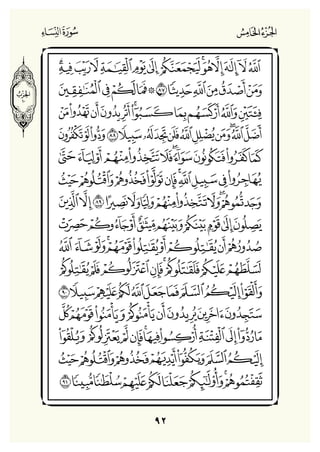 الجُزْءُ الخَامِسُ سُورَةُ النِّسَاءِ
ٱللَّهُ لَآ إِلَٰهَ إِلَّا هُوَۚ لَيَجْمَعَنَّكُمْ إِلَىٰ يَوْمِ ٱلْقِيَٰمَةِ لَا رَيْبَ فِيهِۗ
وَمَنْ أَصْدَقُ مِنَ ٱللَّهِ حَدِيثًا ٨٧ ۞ فَمَا لَكُمْ فِي ٱلْمُنَٰفِقِينَ
فِئَتَيْنِ وَٱللَّهُ أَرْكَسَهُم بِمَا كَسَبُوٓا۟ۚ أَتُرِيدُونَ أَن تَهْدُوا۟ مَنْ
أَضَلَّ ٱللَّهُۖ وَمَن يُضْلِلِ ٱللَّهُ فَلَن تَجِدَ لَهُۥ سَبِيلًا ٨٨ وَدُّوا۟ لَوْ تَكْفُرُونَ
كَمَا كَفَرُوا۟ فَتَكُونُونَ سَوَآءًۖ فَلَا تَتَّخِذُوا۟ مِنْهُمْ أَوْلِيَآءَ حَتَّىٰ
يُهَاجِرُوا۟ فِي سَبِيلِ ٱللَّهِۚ فَإِن تَوَلَّوْا۟ فَخُذُوهُمْ وَٱقْتُلُوهُمْ حَيْثُ
وَجَدتُّمُوهُمْۖ وَلَا تَتَّخِذُوا۟ مِنْهُمْ وَلِيًّا وَلَا نَصِيرًا ٨٩ إِلَّا ٱلَّذِينَ
يَصِلُونَ إِلَىٰ قَوْمٍۭ بَيْنَكُمْ وَبَيْنَهُم مِّيثَٰقٌ أَوْ جَآءُوكُمْ حَصِرَتْ
صُدُورُهُمْ أَن يُقَٰتِلُوكُمْ أَوْ يُقَٰتِلُوا۟ قَوْمَهُمْۚ وَلَوْ شَآءَ ٱللَّهُ
لَسَلَّطَهُمْ عَلَيْكُمْ فَلَقَٰتَلُوكُمْۚ فَإِنِ ٱعْتَزَلُوكُمْ فَلَمْ يُقَٰتِلُوكُمْ
وَأَلْقَوْا۟ إِلَيْكُمُ ٱلسَّلَمَ فَمَا جَعَلَ ٱللَّهُ لَكُمْ عَلَيْهِمْ سَبِيلًا ٩٠
سَتَجِدُونَ ءَاخَرِينَ يُرِيدُونَ أَن يَأْمَنُوكُمْ وَيَأْمَنُوا۟ قَوْمَهُمْ كُلَّ
مَا رُدُّوٓا۟ إِلَى ٱلْفِتْنَةِ أُرْكِسُوا۟ فِيهَاۚ فَإِن لَّمْ يَعْتَزِلُوكُمْ وَيُلْقُوٓا۟
إِلَيْكُمُ ٱلسَّلَمَ وَيَكُفُّوٓا۟ أَيْدِيَهُمْ فَخُذُوهُمْ وَٱقْتُلُوهُمْ حَيْثُ
ثَقِفْتُمُوهُمْۚ وَأُو۟لَٰٓئِكُمْ جَعَلْنَا لَكُمْ عَلَيْهِمْ سُلْطَٰنًا مُّبِينًا ٩١
٩٢